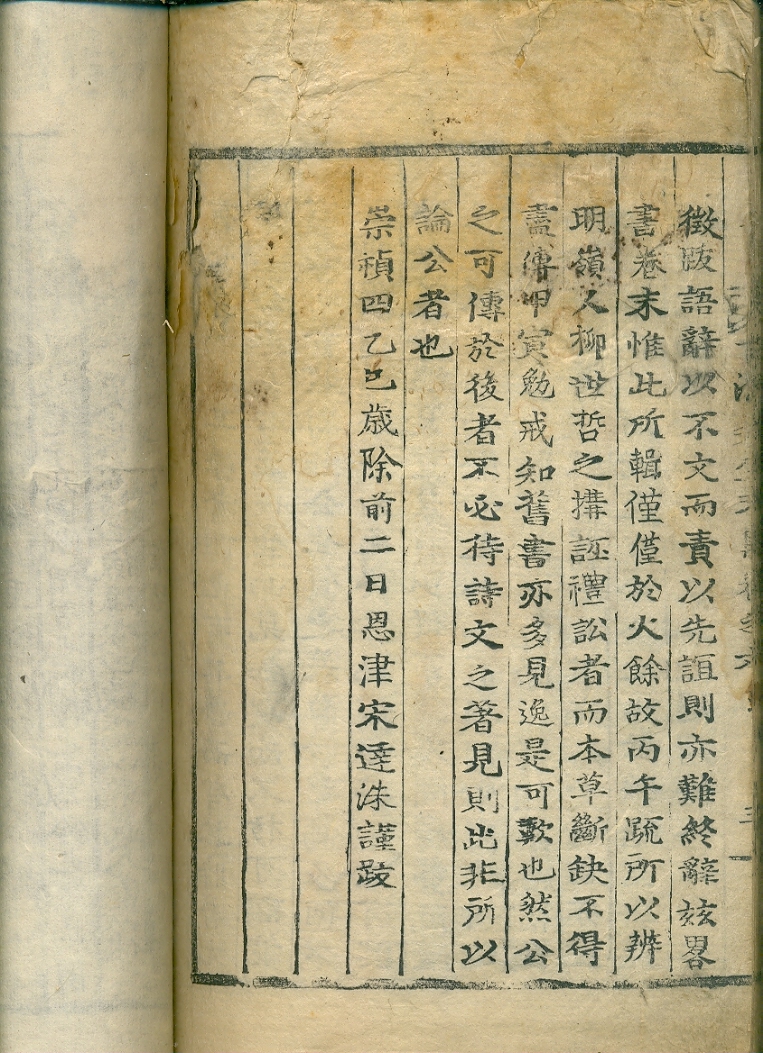 徵跋語辭以不文而責以先誼則亦難終辭玆畧
書卷末惟此所輯僅僅於火餘故丙午疏所以辨
明嶺人柳世哲之搆誣禮訟者而本草斷缺不得
盡傳甲寅勉戒知舊書亦多見逸是可歎也然公
之可傳於後者不必待詩文之著見則此非所以
論公者也
崇禎四乙巳歲除前二日恩津宋達洙謹跋